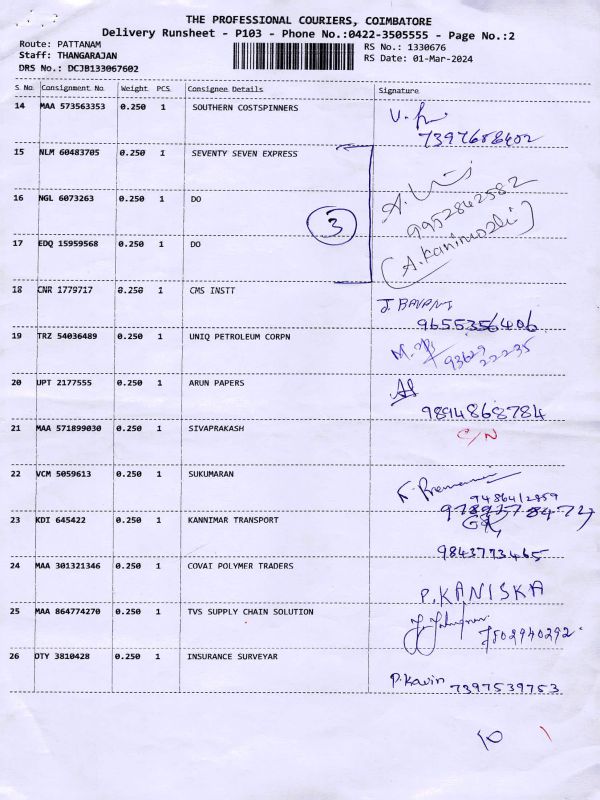 THE PROFESSIONAL COURIERS, COIMBATORE
Delivery Runsheet - P103 - Phone No.:0422-3505555 - Page No.:2
Route: PATTANAM
RS No.: 1330676
Staff: THANGARAJAN
RS Date: 01-Mar-2024
DRS No.: DCJB133067602
S.No. Consignment No. Weight PCS Consignee Details Signature
14 MAA 573563353 0.250 1 SOUTHERN COSTSPINNERS
7397688402
15 NLM 60483705 0.250 1 SEVENTY SEVEN EXPRESS
16 NGL 6073263 0.250 1 DO
9952842582
3
17 EDQ 15959568 0.250 1 DO
(A.Kanimozhi)
18 CNR 1779717 0.250 1 CMS INSTT
J. BAVANI
9655356406
19 TRZ 54036489 0.250 1 UNIQ PETROLEUM CORPN
93629
22235
20 UPT 2177555 0.250 1 ARUN PAPERS
9894868784
21 MAA 571899030 0.250 1 SIVAPRAKASH
C/N
22 VCM 5059613 0.250 1 SUKUMARAN
9486412959
23 KDI 645422 0.250 1 KANNIMAR TRANSPORT
9843773465
24 MAA 301321346 0.250 1 COVAI POLYMER TRADERS
P.KANISKA
25 MAA 864774270 0.250 1 TVS SUPPLY CHAIN SOLUTION
7502940292
26 OTY 3810428 0.250 1 INSURANCE SURVEYAR
P.Kavin 7397539753
10 1